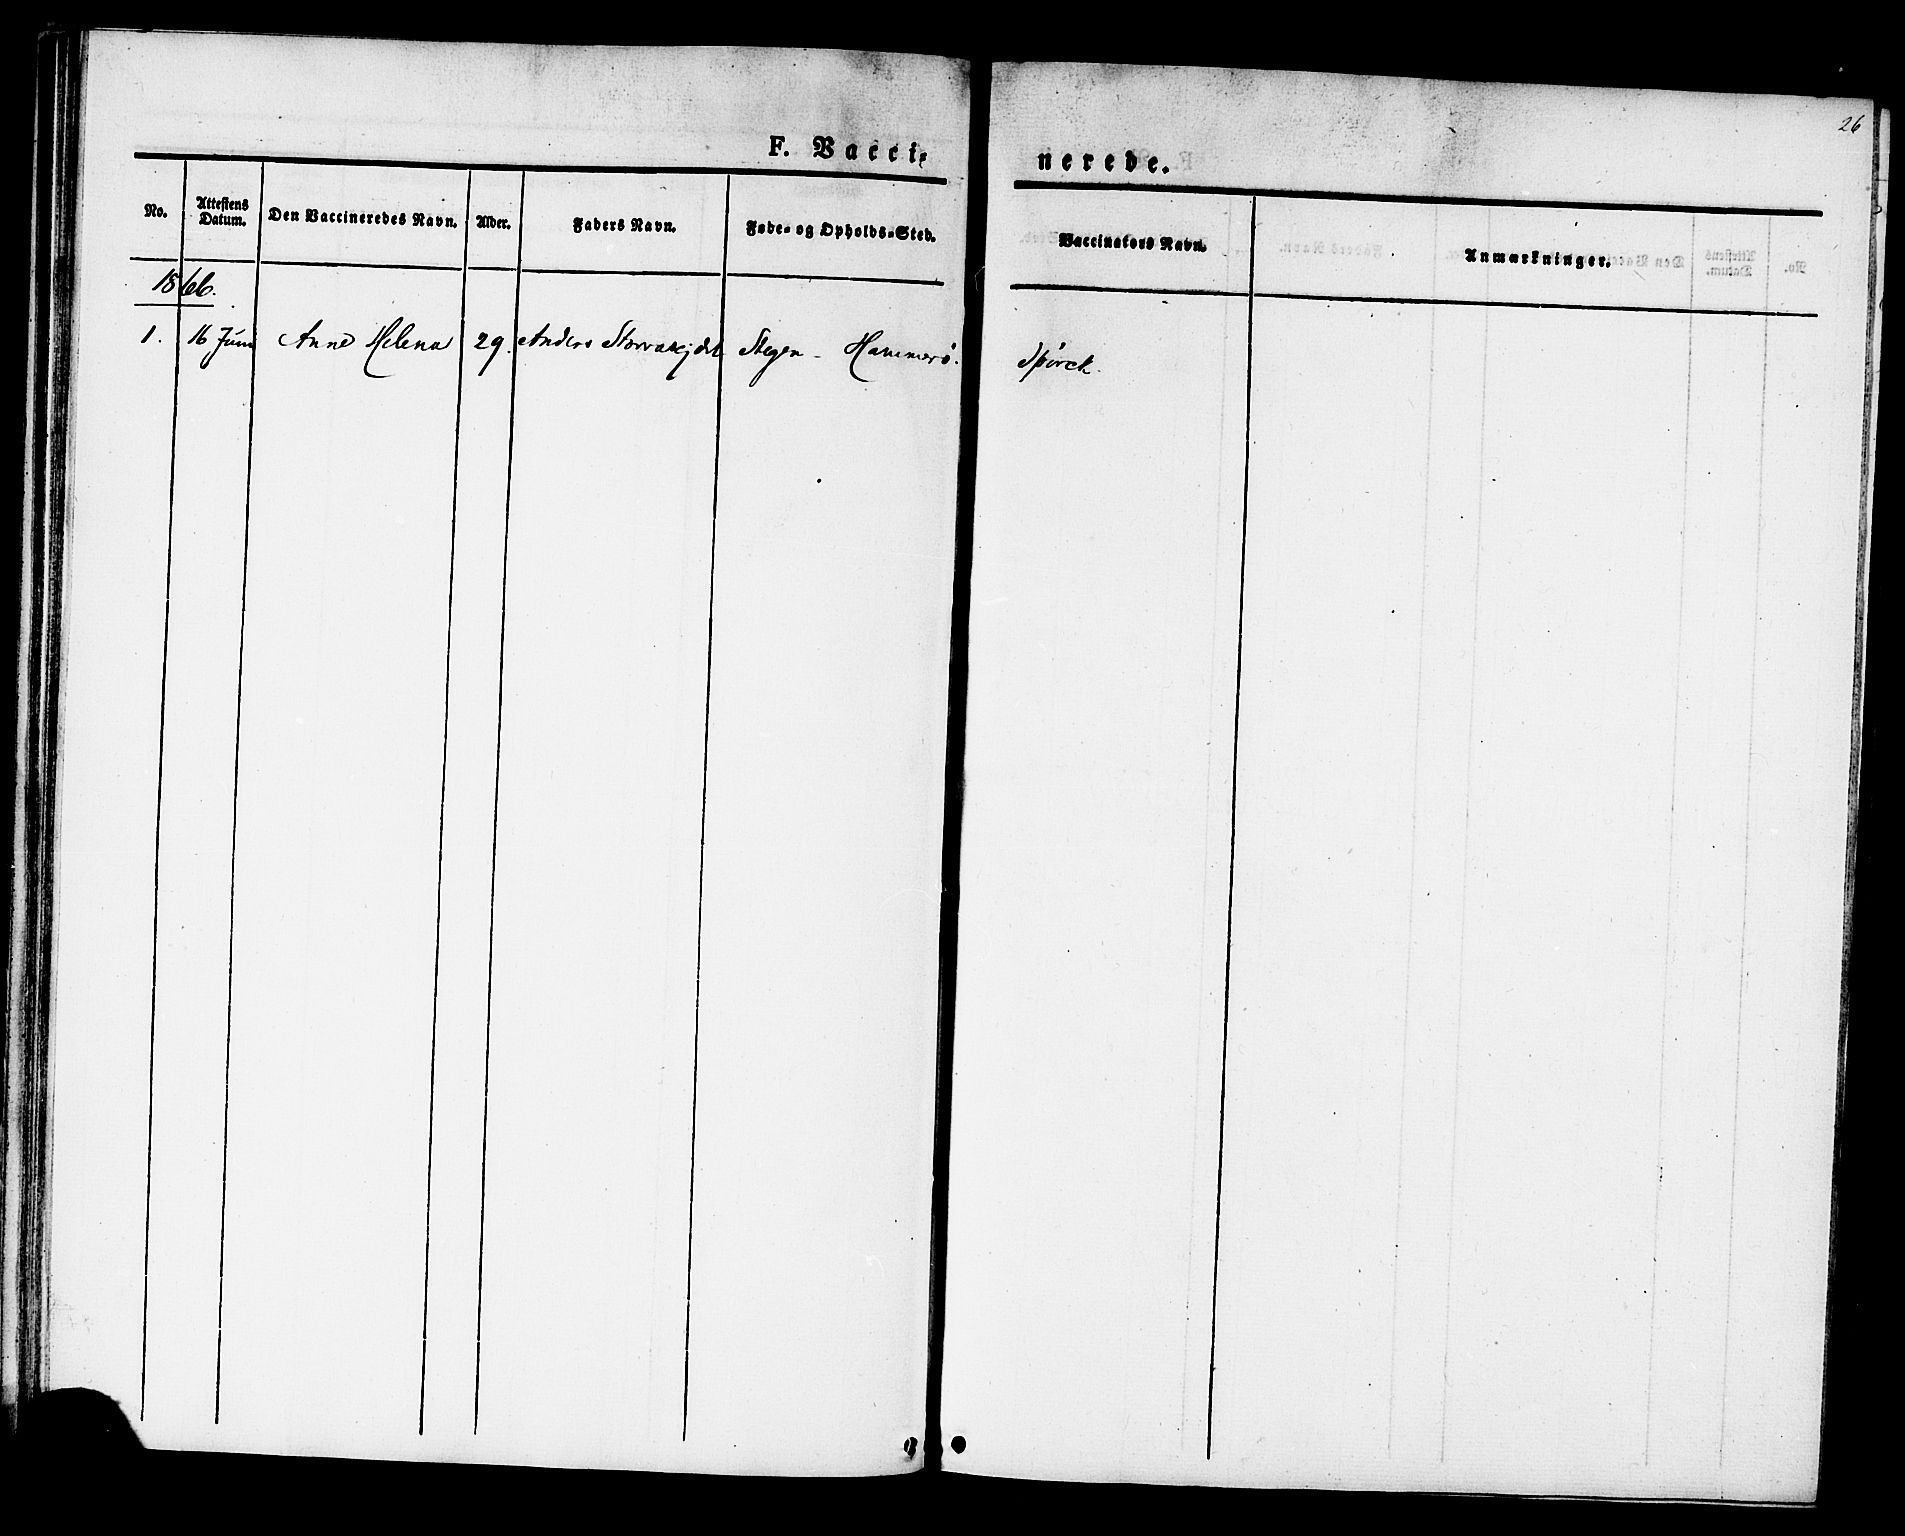 26
F. Vaccinerede.
No.
Attestens Datum.
Den Vaccineredes Navn.
Alder.
Faders Navn.
Føde- og Opholds-Sted.
Vaccinators Navn.
Anmærkninger.
1866.
1. 16 Juni Anne Helena 29. Anders Stegen - Hammerö. Spörck.